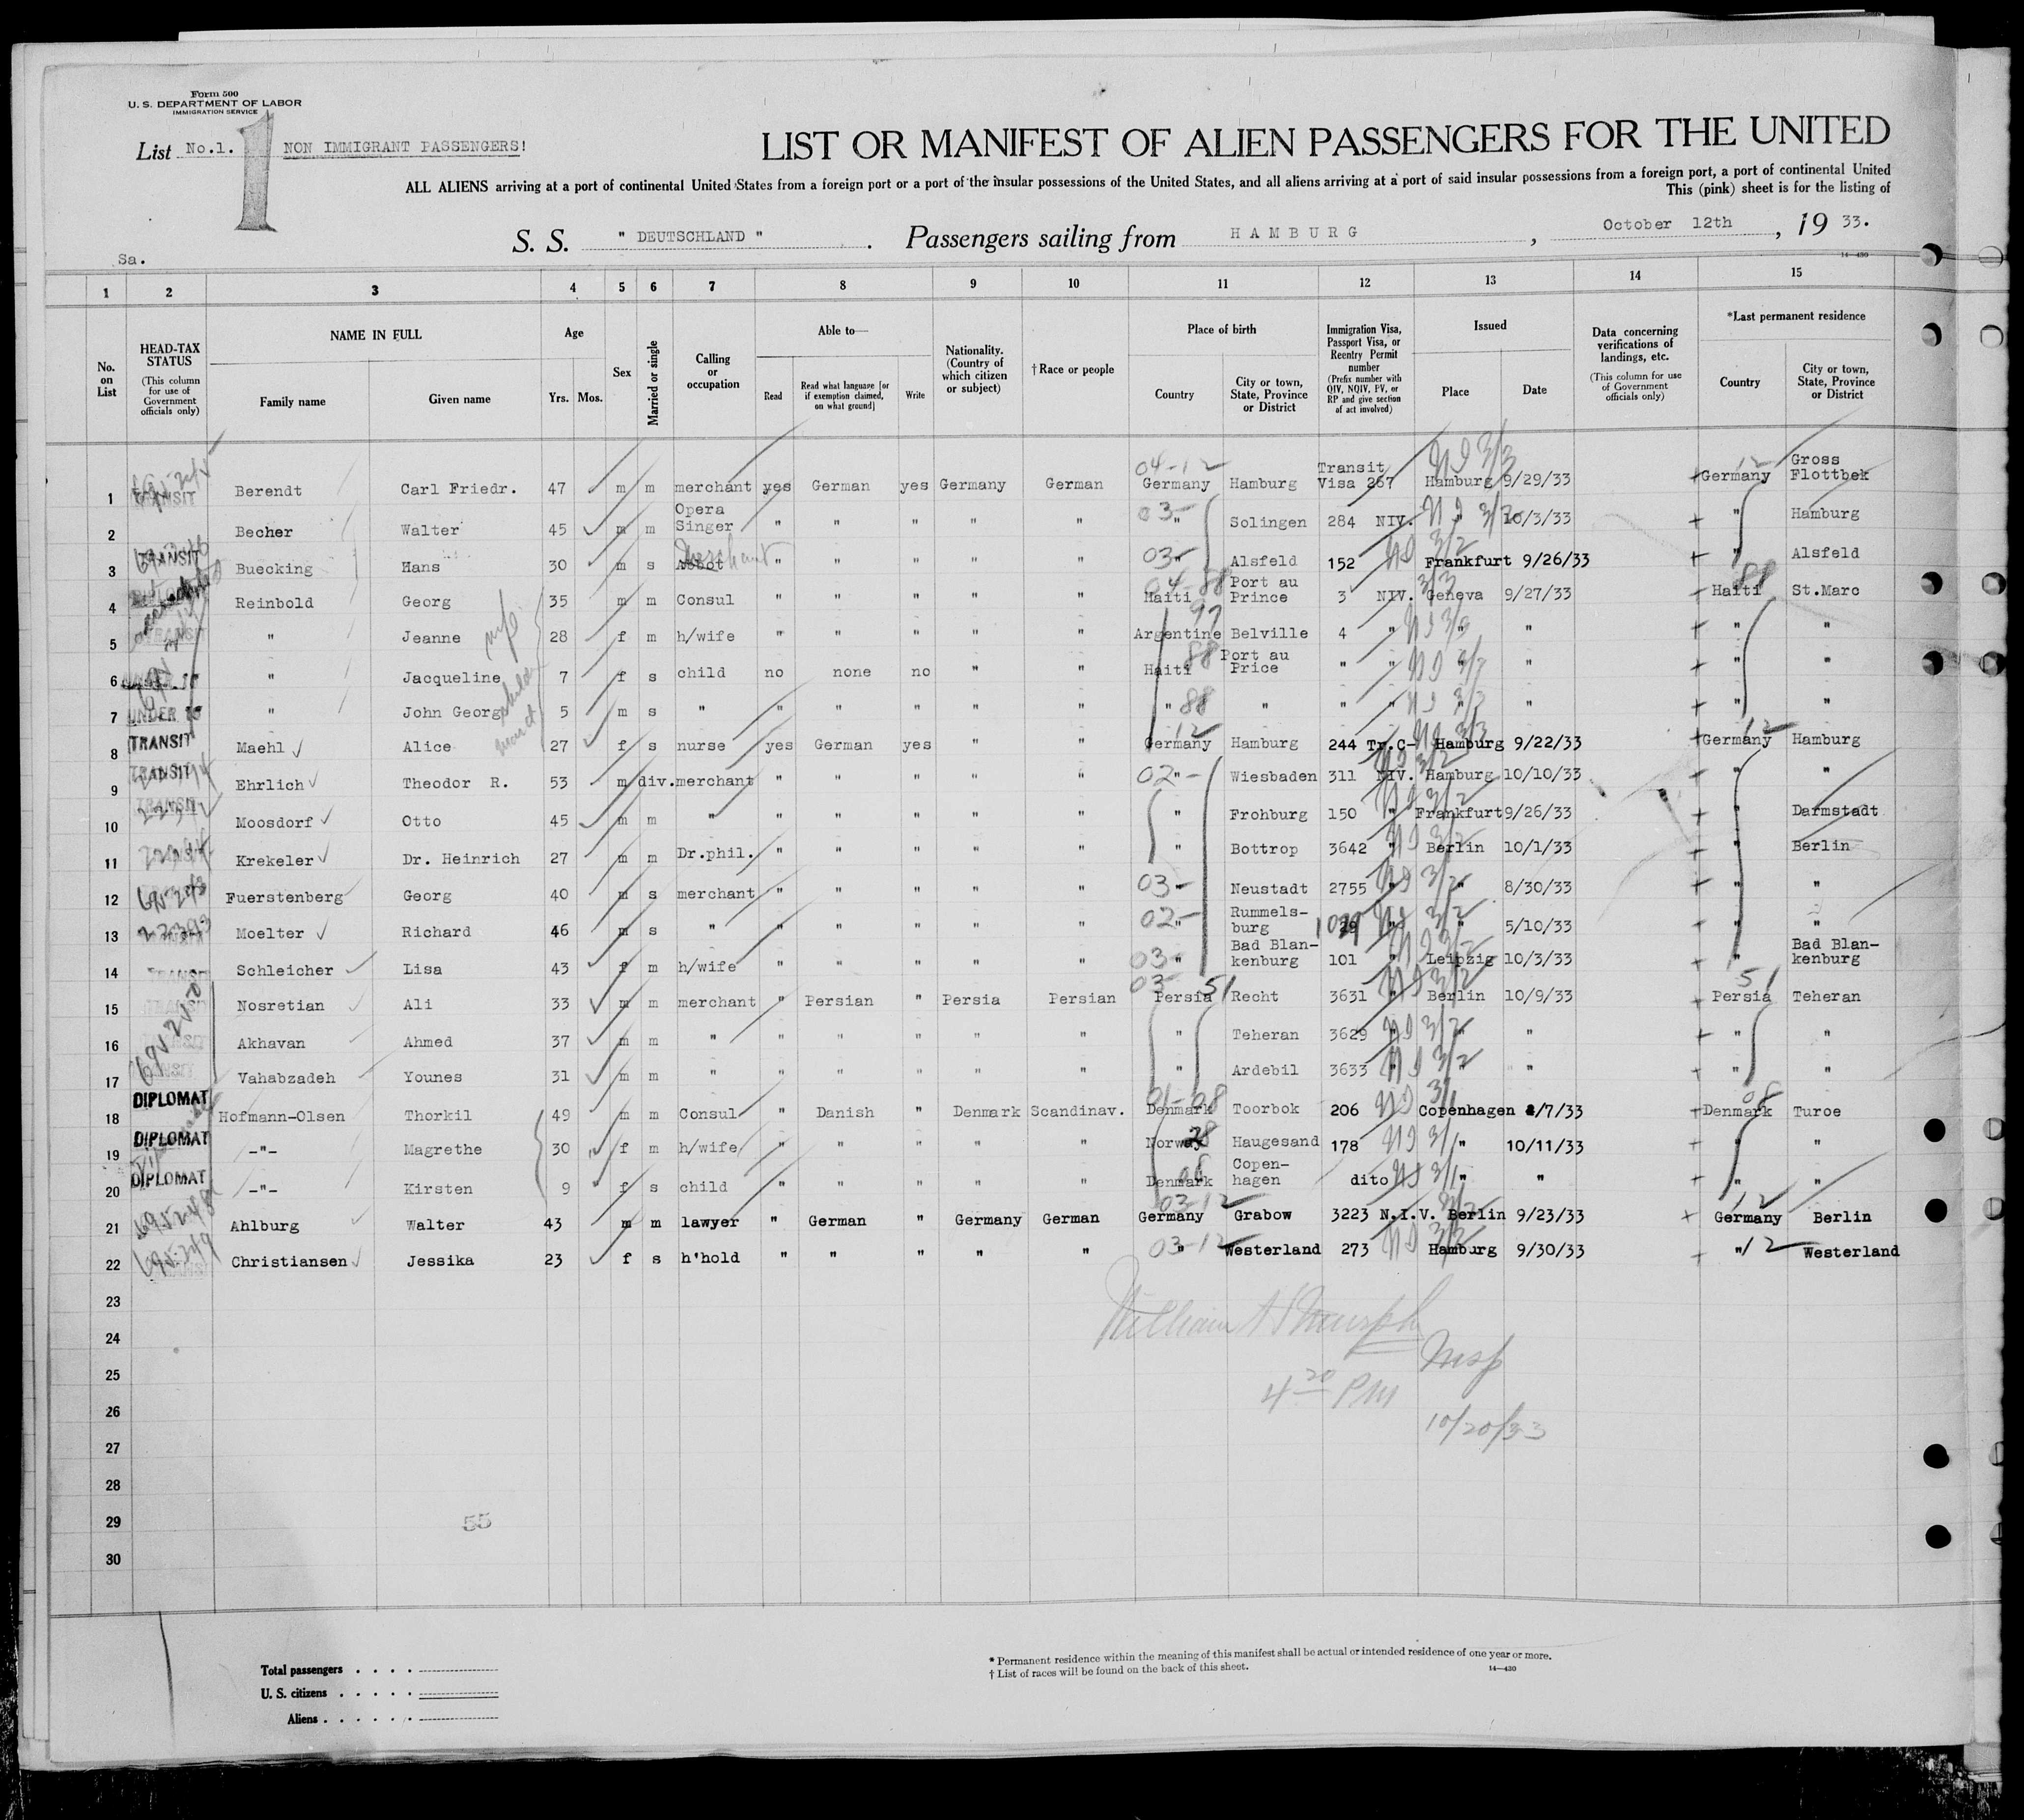 Form 500
U. S. DEPARTMENT OF LABOR
IMMIGRATION SERVICE
List No.1. 1 NON IMMIGRANT PASSENGERS!
LIST OR MANIFEST OF ALIEN PASSENGERS FOR THE UNITED
ALL ALIENS arriving at a port of continental United States from a foreign port or a port of the insular possessions of the United States, and all aliens arriving at a port of said insular possessions from a foreign port, a port of continental United
This (pink) sheet is for the listing of
S. S. " DEUTSCHLAND " . Passengers sailing from HAMBURG , October 12th , 19 33.
Sa.
14—430
1 2 3 4 5 6 7 8 9 10 11 12 13 14 15
No. on List
HEAD-TAX STATUS (This column for use of Government officials only)
NAME IN FULL
Family name
Given name
Age
Yrs. Mos.
Sex
Married or single
Calling or occupation
Able to—
Read
Read what language [or if exemption claimed, on what ground]
Write
Nationality. (Country of which citizen or subject)
†Race or people
Place of birth
Country
City or town, State, Province or District
Immigration Visa, Passport Visa, or Reentry Permit number (Prefix number with QIV, NQIV, PV, or RP and give section of act involved)
Issued
Place
Date
Data concerning verifications of landings, etc. (This column for use of Government officials only)
*Last permanent residence
Country
City or town, State, Province or District
1 TRANSIT Berendt Carl Friedr. 47 m m merchant yes German yes Germany German 04-12 Germany Hamburg Transit Visa 267 Hamburg 9/29/33 12 Germany Gross Flottbek
2 Becher Walter 45 m m Opera Singer " " " " " 03- " Solingen 284 NIV. " 10/3/33 " Hamburg
3 TRANSIT Buecking Hans 30 m s merchant " " " " " 03- " Alsfeld 152 Frankfurt 9/26/33 " Alsfeld
4 Reinbold Georg 35 m m Consul " " " " " 04-88 Haiti Port au Prince 3 NIV. Geneva 9/27/33 88 Haiti St.Marc
5 " Jeanne wife 28 f m h/wife " " " " " Argentine Belville 4 " " " " "
6 " Jacqueline 7 f s child no none no " " 88 Haiti Port au Price " " " " " "
7 UNDER 16 " John Georg 5 m s " " " " " " " 88 " " " " " " "
8 TRANSIT Maehl Alice 27 f s nurse yes German yes " " 12 Germany Hamburg 244 Tr.C- Hamburg 9/22/33 12 Germany Hamburg
9 TRANSIT Ehrlich Theodor R. 53 m div. merchant " " " " " 02- " Wiesbaden 311 NIV. Hamburg 10/10/33 " "
10 TRANSIT Moosdorf Otto 45 m m " " " " " " " Frohburg 150 " Frankfurt 9/26/33 " Darmstadt
11 Krekeler Dr. Heinrich 27 m m Dr.phil. " " " " " " Bottrop 3642 " Berlin 10/1/33 " Berlin
12 Fuerstenberg Georg 40 m s merchant " " " " " 03- " Neustadt 2755 " " 8/30/33 " "
13 Moelter Richard 46 m s " " " " " " 02- " Rummelsburg " " 5/10/33 " "
14 TRANSIT Schleicher Lisa 43 f m h/wife " " " " " 03- " Bad Blankenburg 101 " Leipzig 10/3/33 " Bad Blankenburg
15 TRANSIT Nosretian Ali 33 m m merchant " Persian " Persia Persian 03- 51 Persia Recht 3631 " Berlin 10/9/33 51 Persia Teheran
16 Akhavan Ahmed 37 m m " " " " " " " Teheran 3629 " " " " "
17 Vahabzadeh Younes 31 m m " " " " " " " Ardebil 3633 " " " " "
18 DIPLOMAT Hofmann-Olsen Thorkil 49 m m Consul " Danish " Denmark Scandinav. 01-08 Denmark Toorbok 206 Copenhagen /7/33 08 Denmark Turoe
19 DIPLOMAT -"- Magrethe 30 f m h/wife " " " " " 28 Norway Haugesand 178 " 10/11/33 " "
20 DIPLOMAT -"- Kirsten 9 f s child " " " " " 08 Denmark Copenhagen dito " " " "
21 Ahlburg Walter 43 m m lawyer " German " Germany German 03-12 Germany Grabow 3223 N.I.V. Berlin 9/23/33 12 Germany Berlin
22 Christiansen Jessika 23 f s h'hold " " " " " 03-12 " Westerland 273 Hamburg 9/30/33 " 12 Westerland
23
24
25
26
27
28
29
30
William
Insp
4 20 PM
10/20/33
55
Total passengers
U. S. citizens
Aliens
* Permanent residence within the meaning of this manifest shall be actual or intended residence of one year or more.
† List of races will be found on the back of this sheet.
14—430